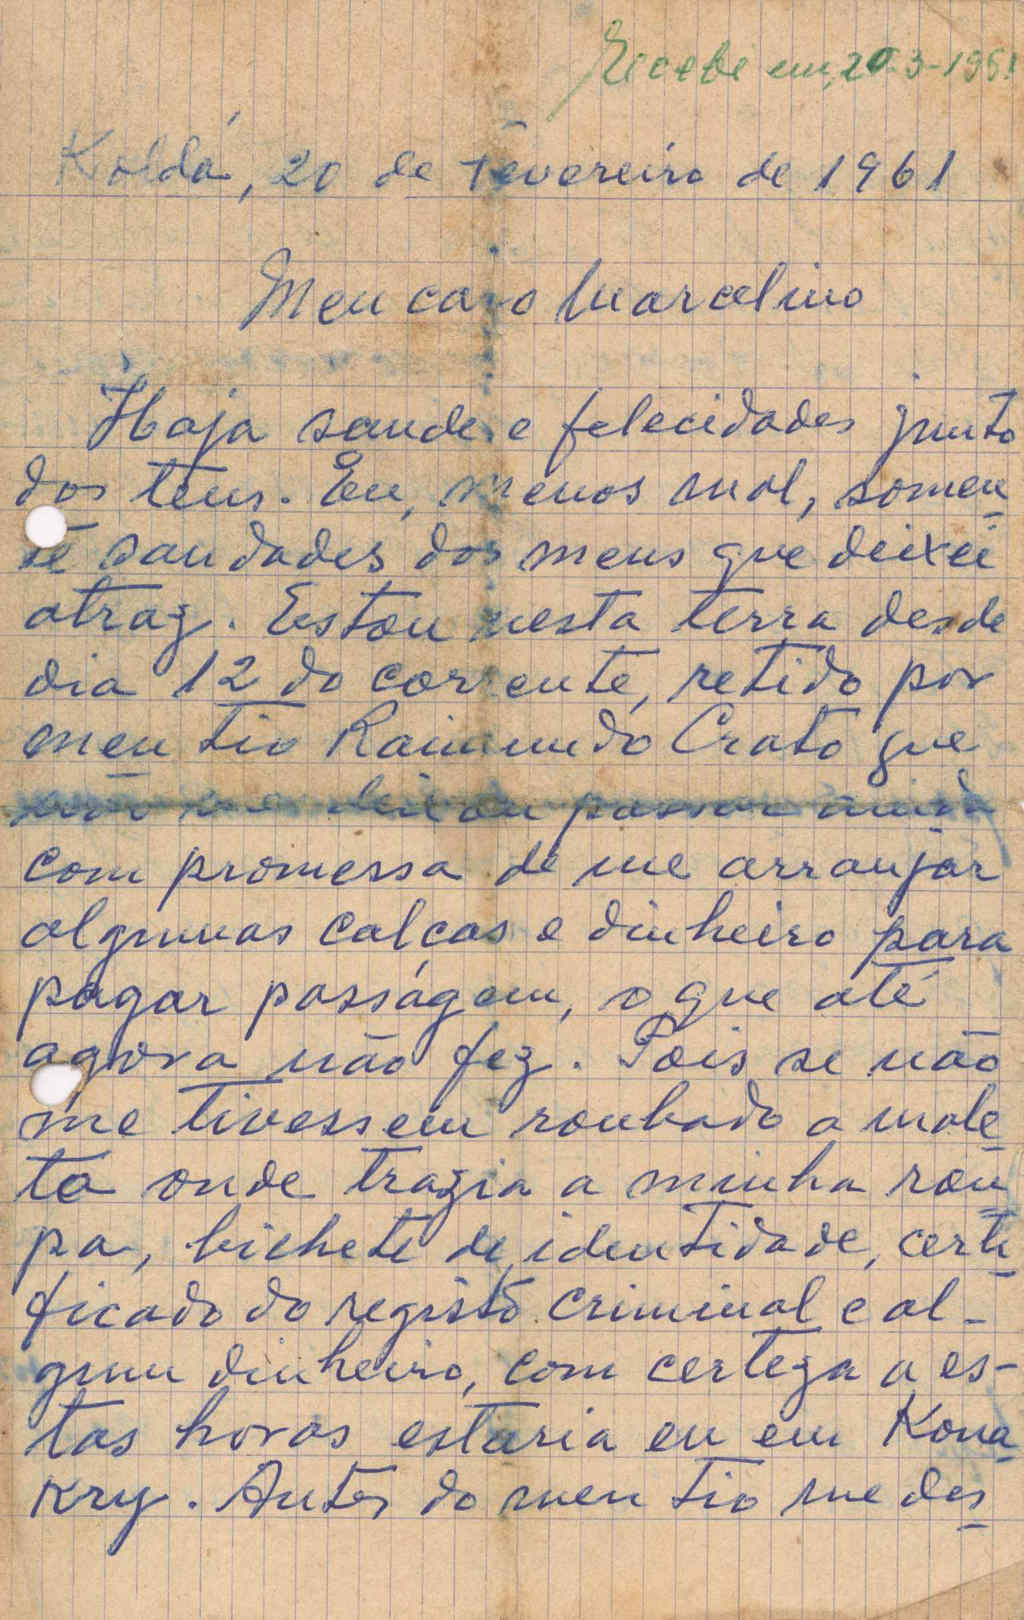 Recebi em, 20-3-1961
Koldá, 20 de fevereiro de 1961
Meu caro Marcelino
Haja saude e felecidades junto
dos teus. Eu, menos mal, somen
te saudades dos meus que deixei
atraz. Estou nesta terra desde
dia 12 do corrente, retido por
meu tio Raimundo Crato que
não me deixou passar ainda
com promessa de me arranjar
algumas calças e dinheiro para
pagar passágem, o que até
agora não fez. Pois se não
me tivessem roubado a male
ta onde trazia a minha rou
pa, bichete de identidade, certi
ficado do registo criminal e al-
gum dinheiro, com certeza a es-
tas horas estaria eu em Kona
kry. Antes do meu tio me des